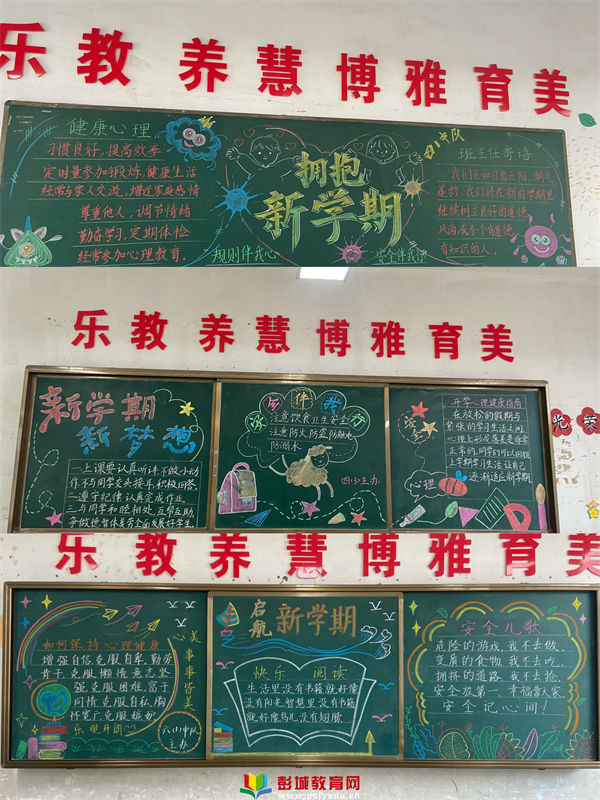 乐教 养慧 博雅 育美
健康心理
习惯良好,提高效率
定时量参加锻炼,健康生活
经常与家人交流,增近家庭感情
尊重他人,调节情绪
勤奋学习,定期体检
经常参加心理教育。
拥抱
新学期
规则伴我心
安全伴我行
四1中队
班主任寄语
我们正如旭日
继续树立良好的道德
风尚,成为一个有道德
有知识的人。
乐教 养慧 博雅 育美
新学期
新梦想
一上课要认真听讲不做小动
作不与同学交头接耳,积极回答
二遵守纪律认真完成作业
三与同学和睦相处,互帮互助
争做德智体美劳全面发展好学生
安全伴我行
注意饮食卫生安全
注意防火防盗防触电
防溺水
四(3)主办
安全
心理
开学心理健康指南
在放松的假期与
紧张的学习生活之间
心理上形成落差是非常
正常的,同学们可以回顾
上学期学习生活让自己
逐渐适应新学期
光荣
乐教 养慧 博雅 育美
如何保持心理健康
增强自信,克服自卑,勤劳
肯干,克服懒惰,意志坚
强,克服困难,富于
同情,克服自私,胸
怀宽广,克服嫉妒
乐观开阔
心美
事事皆美
六(1)中队
主办
启航
新学期
快乐 阅读
生活里没有书籍就好像
没有阳光,智慧里没有书籍
就好像鸟儿没有翅膀
安全儿歌
危险的游戏,我不去做.
变质的食物,我不去吃.
拥挤的道路,我不去抢.
安全放第一,幸福靠大家.
安全记心间!
彭城教育网
www.pcjyedu.cn